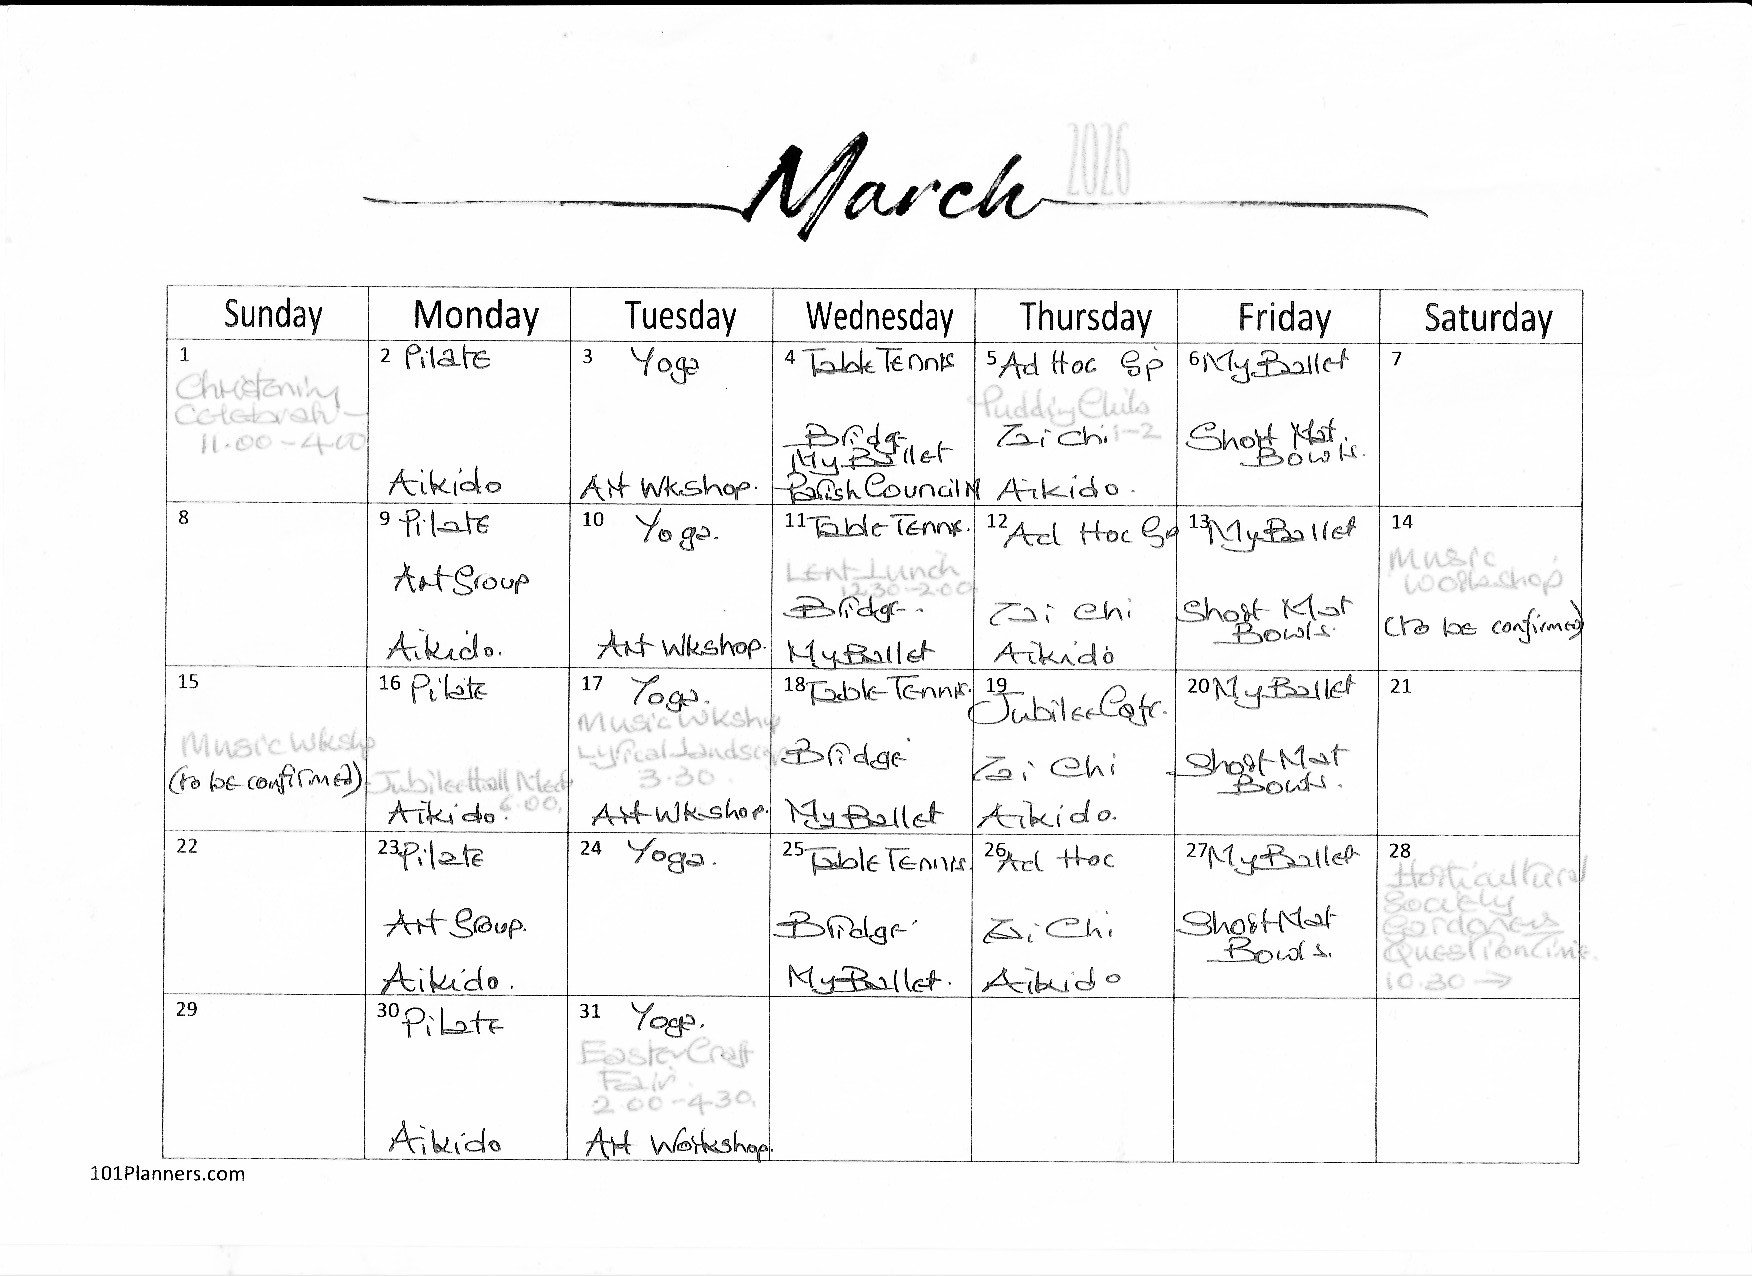 March 2026
Sunday Monday Tuesday Wednesday Thursday Friday Saturday
1
Christening
Celebrah-
11.00-4.00
2 Pilate
Aikido
3 Yoga
Art Wkshop.
4 Table Tennis
Bridge
My Ballet
Parish Council M
5 Ad Hoc Gp
Pudding Club
Tai Chi 1-2
Aikido.
6 My Ballet
Short Mat.
Bowls.
7
8
9 Pilate
Art Group
Aikido.
10 Yoga.
Art Wkshop.
11 Table Tennis.
Lent Lunch
12.30-2.00
Bridge.
My Ballet
12 Ad Hoc Gp
Tai Chi
Aikido
13 My Ballet
Short Mat
Bowls.
14
Music
Workshop
(to be confirmed)
15
Music Wkshp
(to be confirmed)
16 Pilate
Jubilee Hall Meet
6.00.
Aikido.
17 Yoga.
Music Wkshp
Lyrical Landsca
3.30.
Art Wkshop.
18 Table Tennis.
Bridge
My Ballet
19
Jubilee Cafe.
Tai Chi
Aikido.
20 My Ballet
Short Mat
Bowls.
21
22
23 Pilate
Art Group.
Aikido.
24 Yoga.
25 Table Tennis.
Bridge
My Ballet.
26 Ad Hoc
Tai Chi
Aikido
27 My Ballet
Short Mat
Bowls.
28
Horticultural
Society
Gardeners
Question Time.
10.30 →
29
30 Pilate
Aikido
31 Yoga.
Easter Craft
Fair.
2.00-4.30.
Art Workshop.
101Planners.com